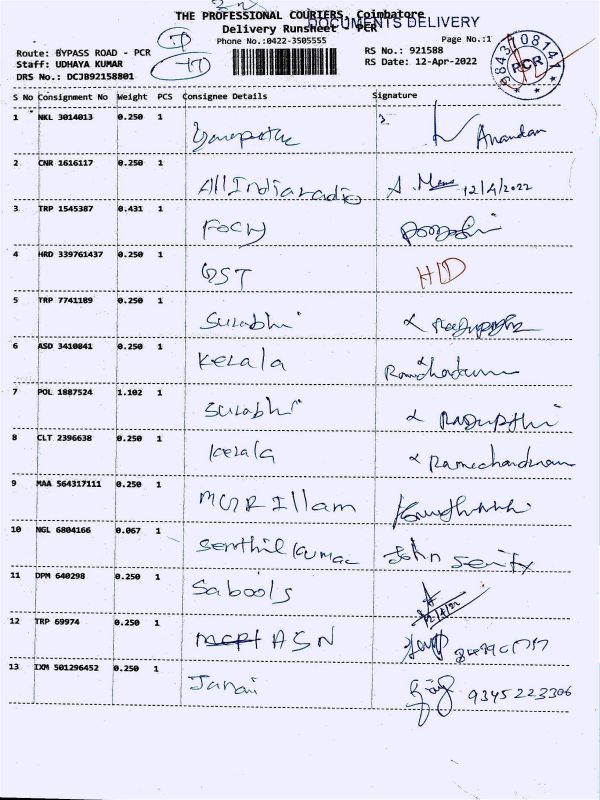 THE PROFESSIONAL COURIERS, Coimbatore
DOCUMENTS DELIVERY
Delivery Runsheet - PCR
Phone No.:0422-3505555
Page No.:1
Route: BYPASS ROAD - PCR
RS No.: 921588
Staff: UDHAYA KUMAR
RS Date: 12-Apr-2022
DRS No.: DCJB92158801
PCR
S No Consignment No Weight PCS Consignee Details Signature
1 NKL 3014013 0.250 1 Anandan
2 CNR 1616117 0.250 1 All India radio 12/4/2022
3 TRP 1545387 0.431 1
4 HRD 339761437 0.250 1 GST
5 TRP 7741189 0.250 1 Surabhi
6 ASD 3410841 0.250 1 Kerala
7 POL 1887524 1.102 1 Surabhi
8 CLT 2396638 0.250 1 Kerala
9 MAA 564317111 0.250 1 MGR Illam
10 NGL 6804166 0.067 1 Senthil Kumar John
11 DPM 640298 0.250 1 Sabools
12 TRP 69974 0.250 1 ASN
13 IXM 501296452 0.250 1 Janai 9345223306